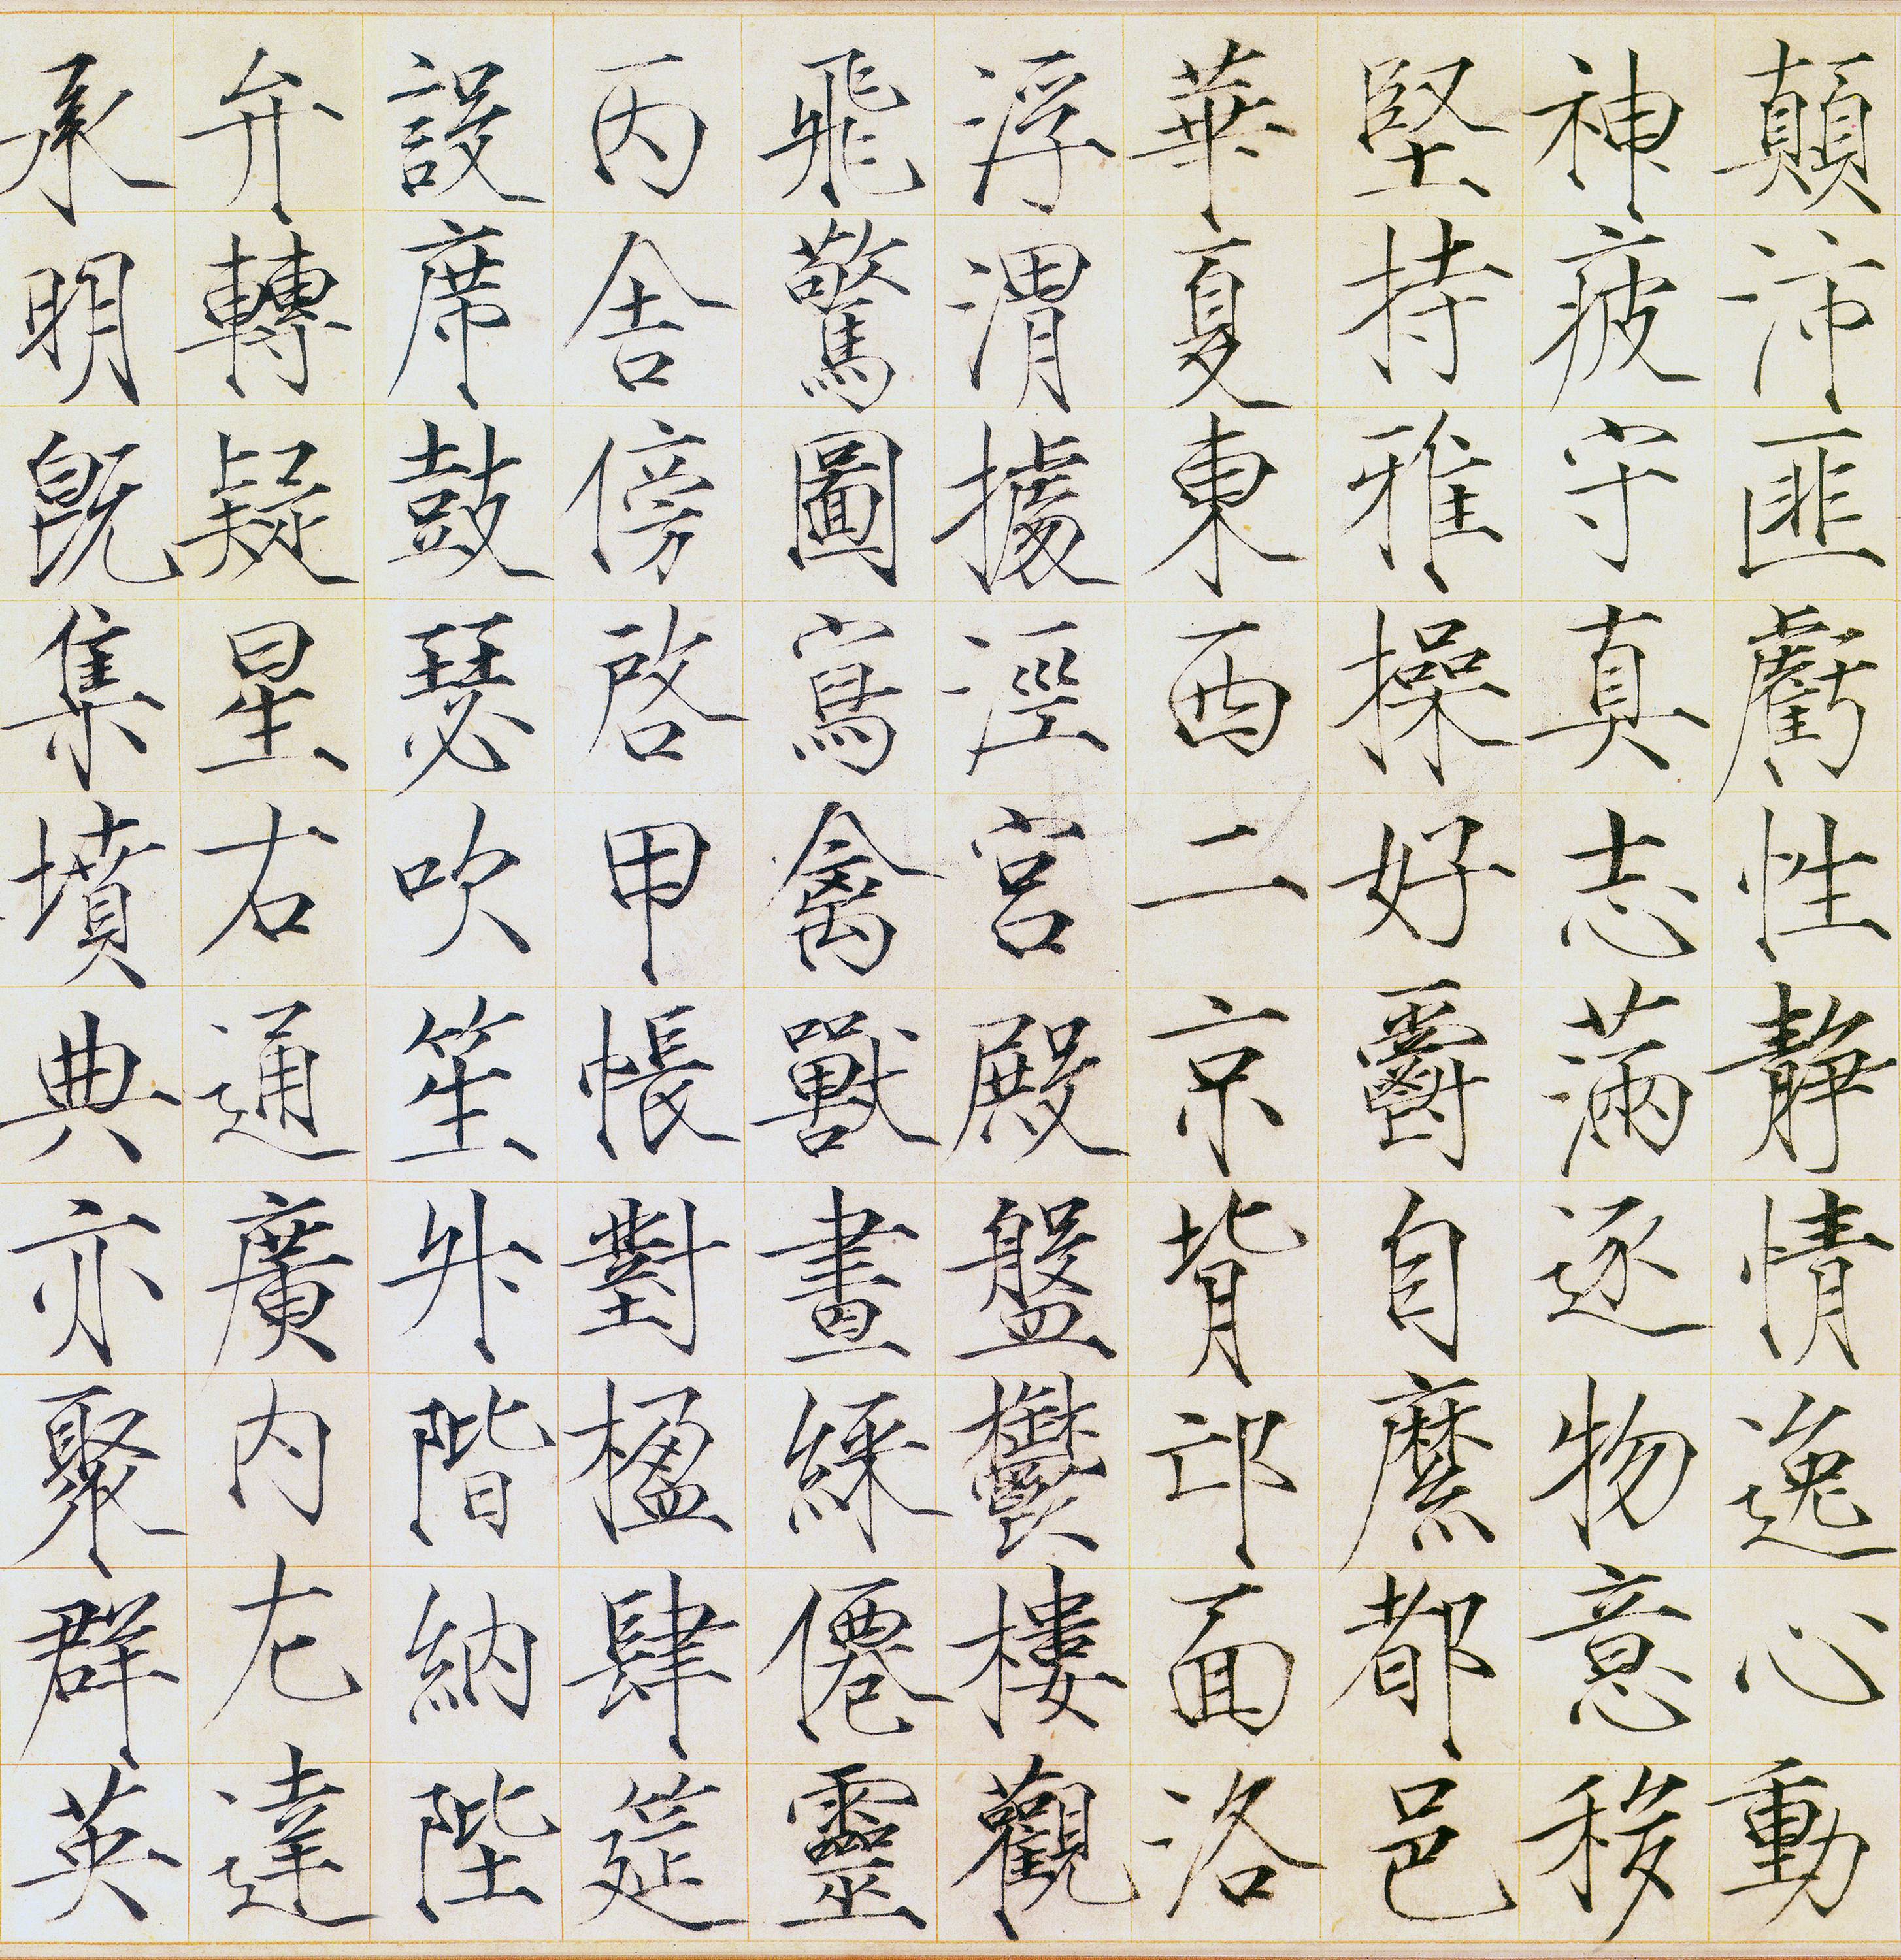 顛沛匪虧性靜情逸心動
神疲守真志滿逐物意移
堅持雅操好爵自縻都邑
華夏東西二京背邙面洛
浮渭據涇宮殿盤鬱樓觀
飛驚圖寫禽獸畫綵僊靈
丙舍傍啓甲帳對楹肆筵
設席鼓瑟吹笙升階納陛
弁轉疑星右通廣內左達
承明既集墳典亦聚群英